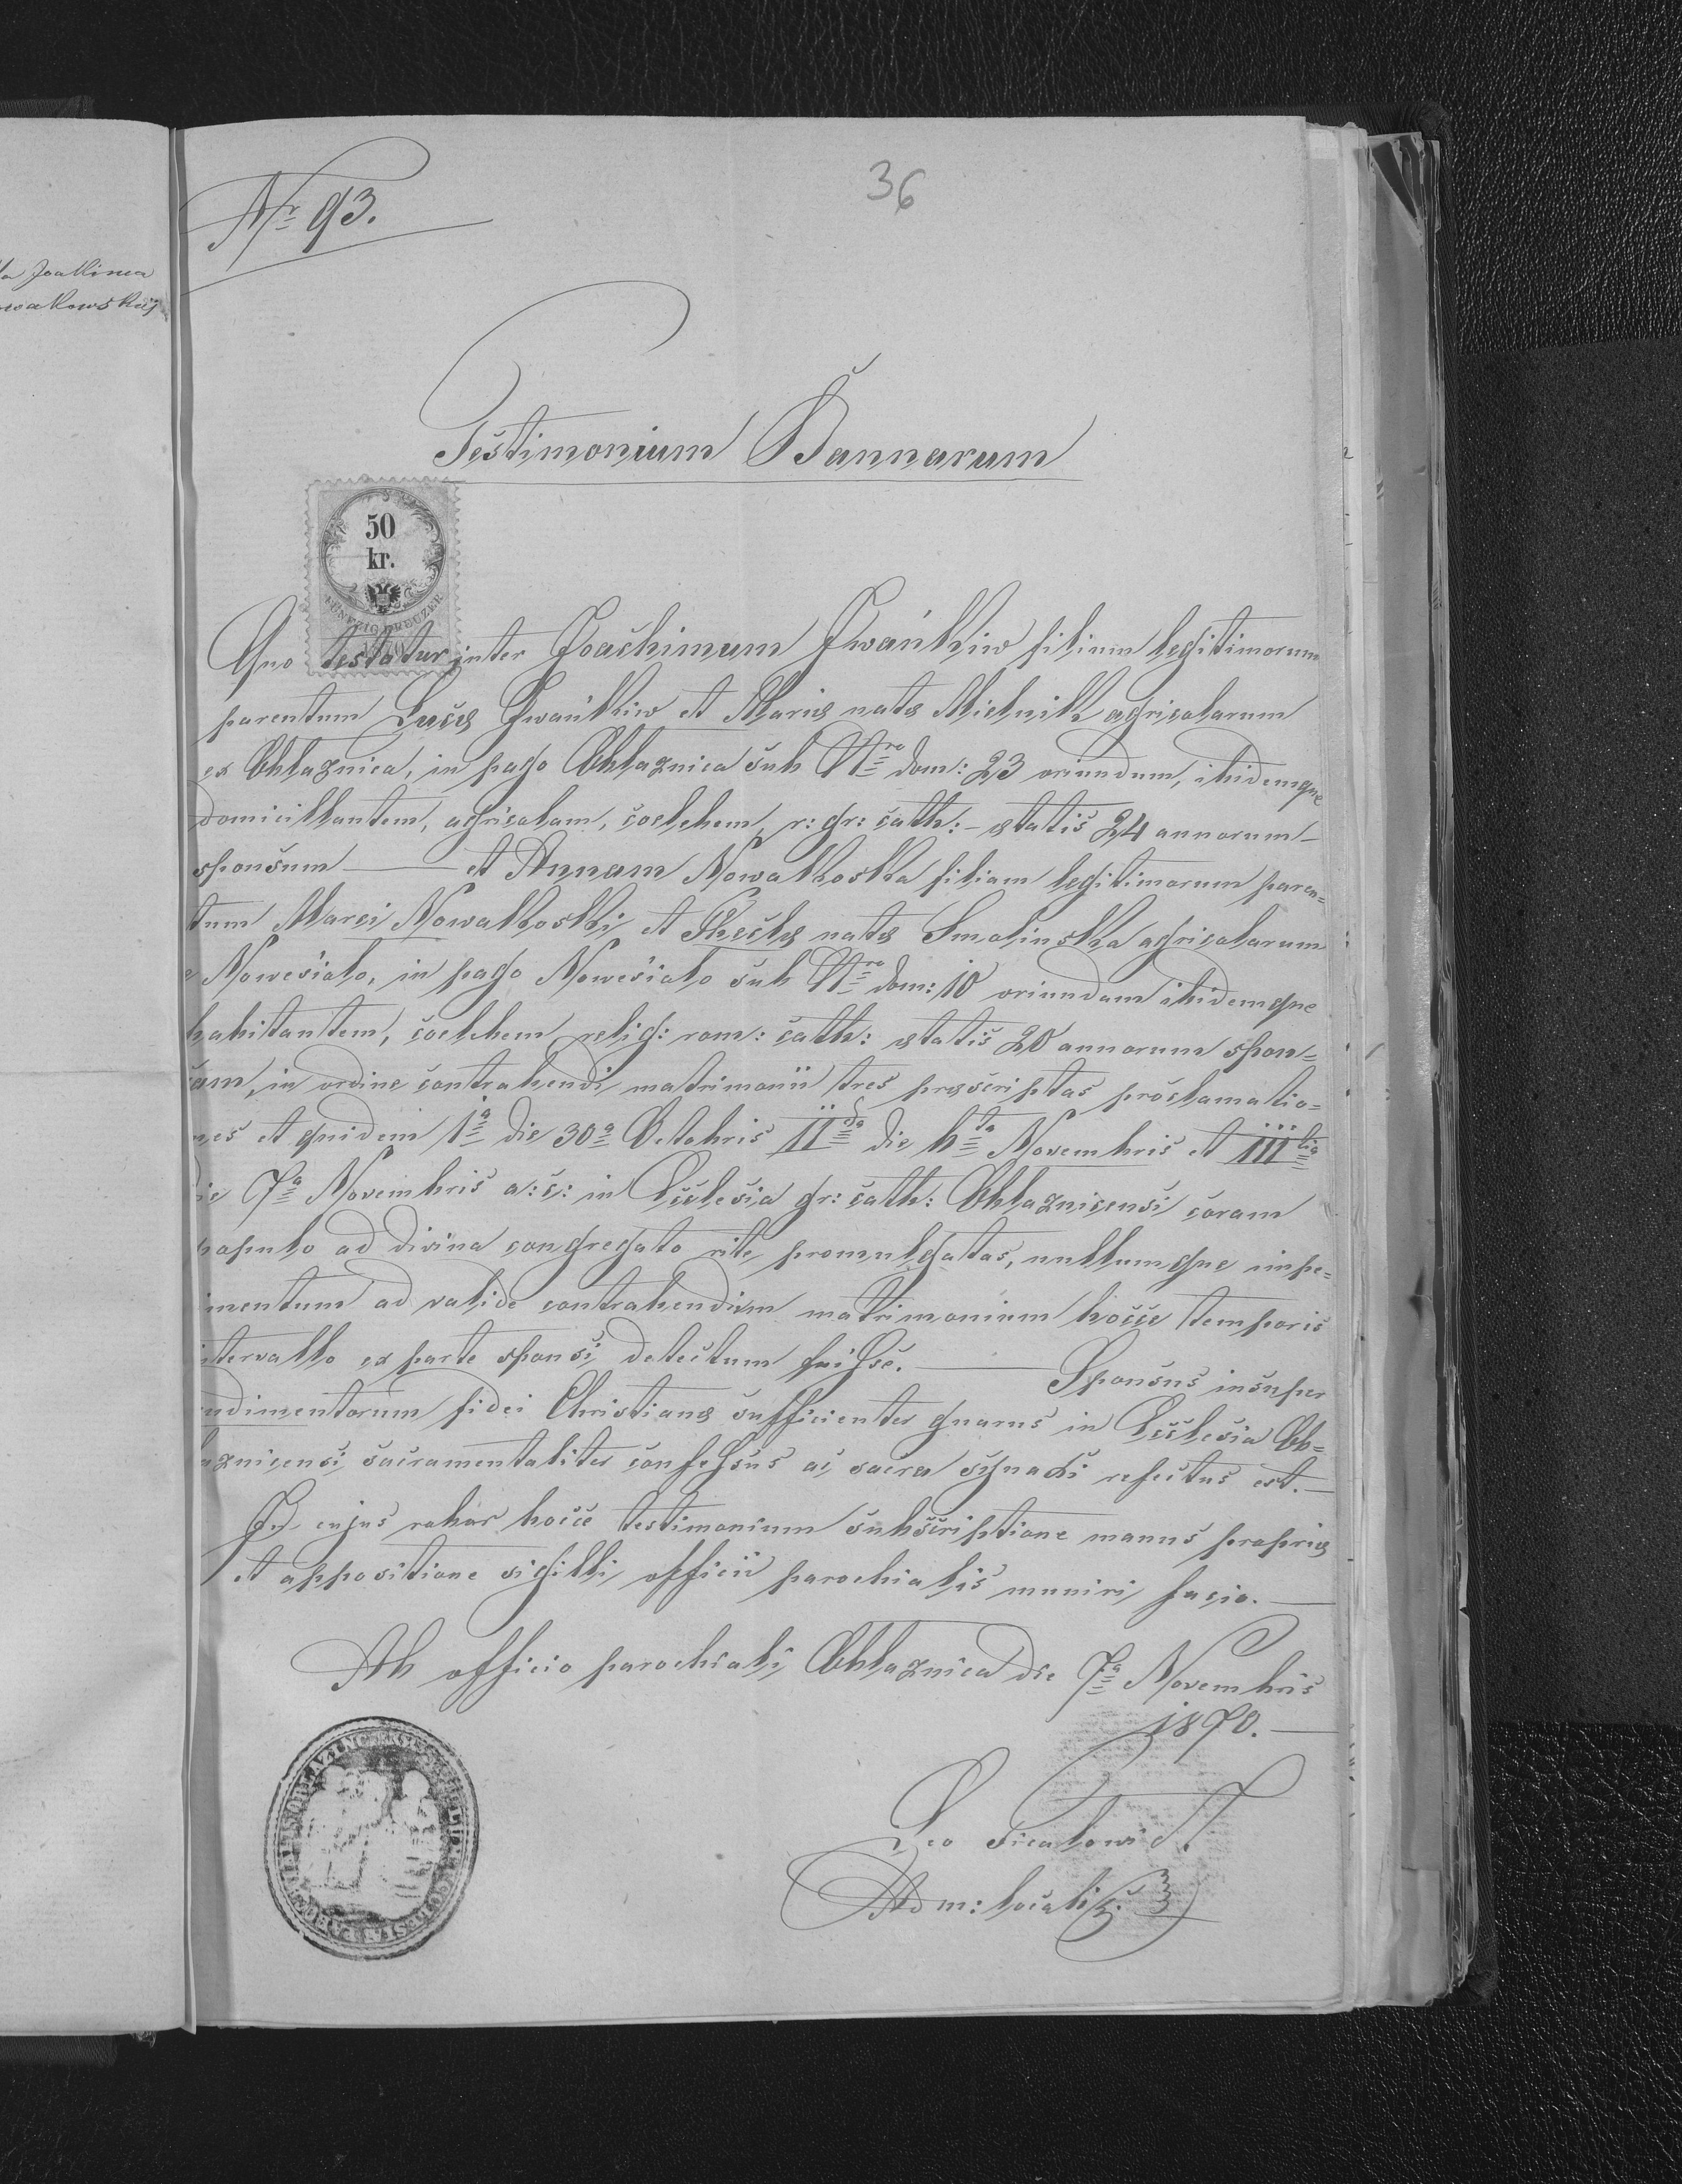 Nr 93.
36
Testimonium Bannarum
50
kr.
FÜNFZIG KREUZER
Quo testatur inter Joachimum Iwańkiw filium legitimorum
parentum Lucæ Iwańkiw et Mariæ natæ Mielnik agricolarum
ex Obłaznica, in pago Obłaznica sub Nro dom: 23 oriundum, ibidemque
domiciliantem, agricolam, coelebem, r: gr: cath: – ætatis 24 annorum –
sponsum — et Annam Nowakoska filiam legitimorum paren=
tum Marci Nowakoski et Theclæ natæ Smolinska agricolarum
e Nowesioło, in pago Nowesioło sub Nro dom: 10 oriundam ibidemque
habitantem, coelebem relig: rom: cath: ætatis 20 annorum spon=
sam, in ordine contrahendi matrimonii tres præscriptas proclamatio=
nes et quidem 1a die 30a Octobris IIda die 6ta Novembris et IIItia
die 7a Novembris a: c: in Ecclesia gr: cath: Obłaznicensi coram
populo ad divina congregato rite promulgatas, nullumque impe=
dimentum ad valide contrahendum matrimonium hocce temporis
intervallo ex parte sponsi detectum fuisse. — Sponsus insuper
rudimentorum fidei Christianæ sufficienter gnarus in Ecclesia Ob=
łaznicensi sacramentaliter confessus ac sacra synaxi refectus est. —
In cujus robur hocce testimonium subscriptione manus propriæ
et appositione sigilli officii parochialis muniri facio. —
Ab officio parochiali Obłaznica die 7a Novembris
1870. —
Leo
Adm: localis